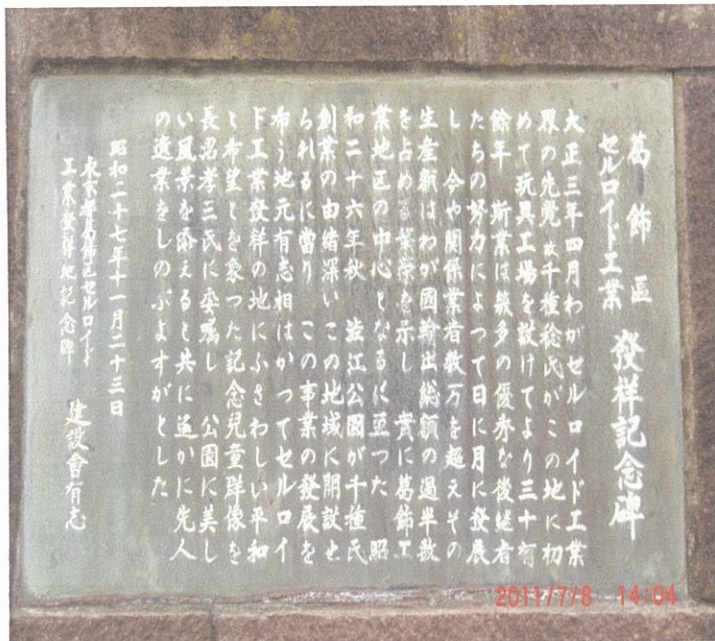 葛飾區
セルロイド工業
發祥記念碑
大正三年四月わがセルロイド工業
界の先覺故千種稔氏がこの地に初
めて玩具工場を設けてより三十有
餘年　斯業は幾多の優秀な後継者
たちの努力によって日に月に發展
し　今や関係業者数万を超えその
生産額はわが國輸出総額の過半数
を占める業京を示し　實に葛飾工
業地区の中心となるに至つた　昭
和二十六年秋　澁江公園が千種氏
創業の由緒深いこの地域に開設せ
られるに當り　この事業の發展を
希う地元有志相はかつてセルロイ
ド工業發祥の地にふさわしい平和
と希望とを象つた記念兒童群像を
長沼孝三氏に委嘱し　公園に美し
い風景を添えると共に遥かに先人
の遺業をしのぶよすがとした
昭和二十七年十一月二十三日
東京都葛飾區セルロイド
工業發祥地記念碑
建設會有志
2011/7/8 14:04